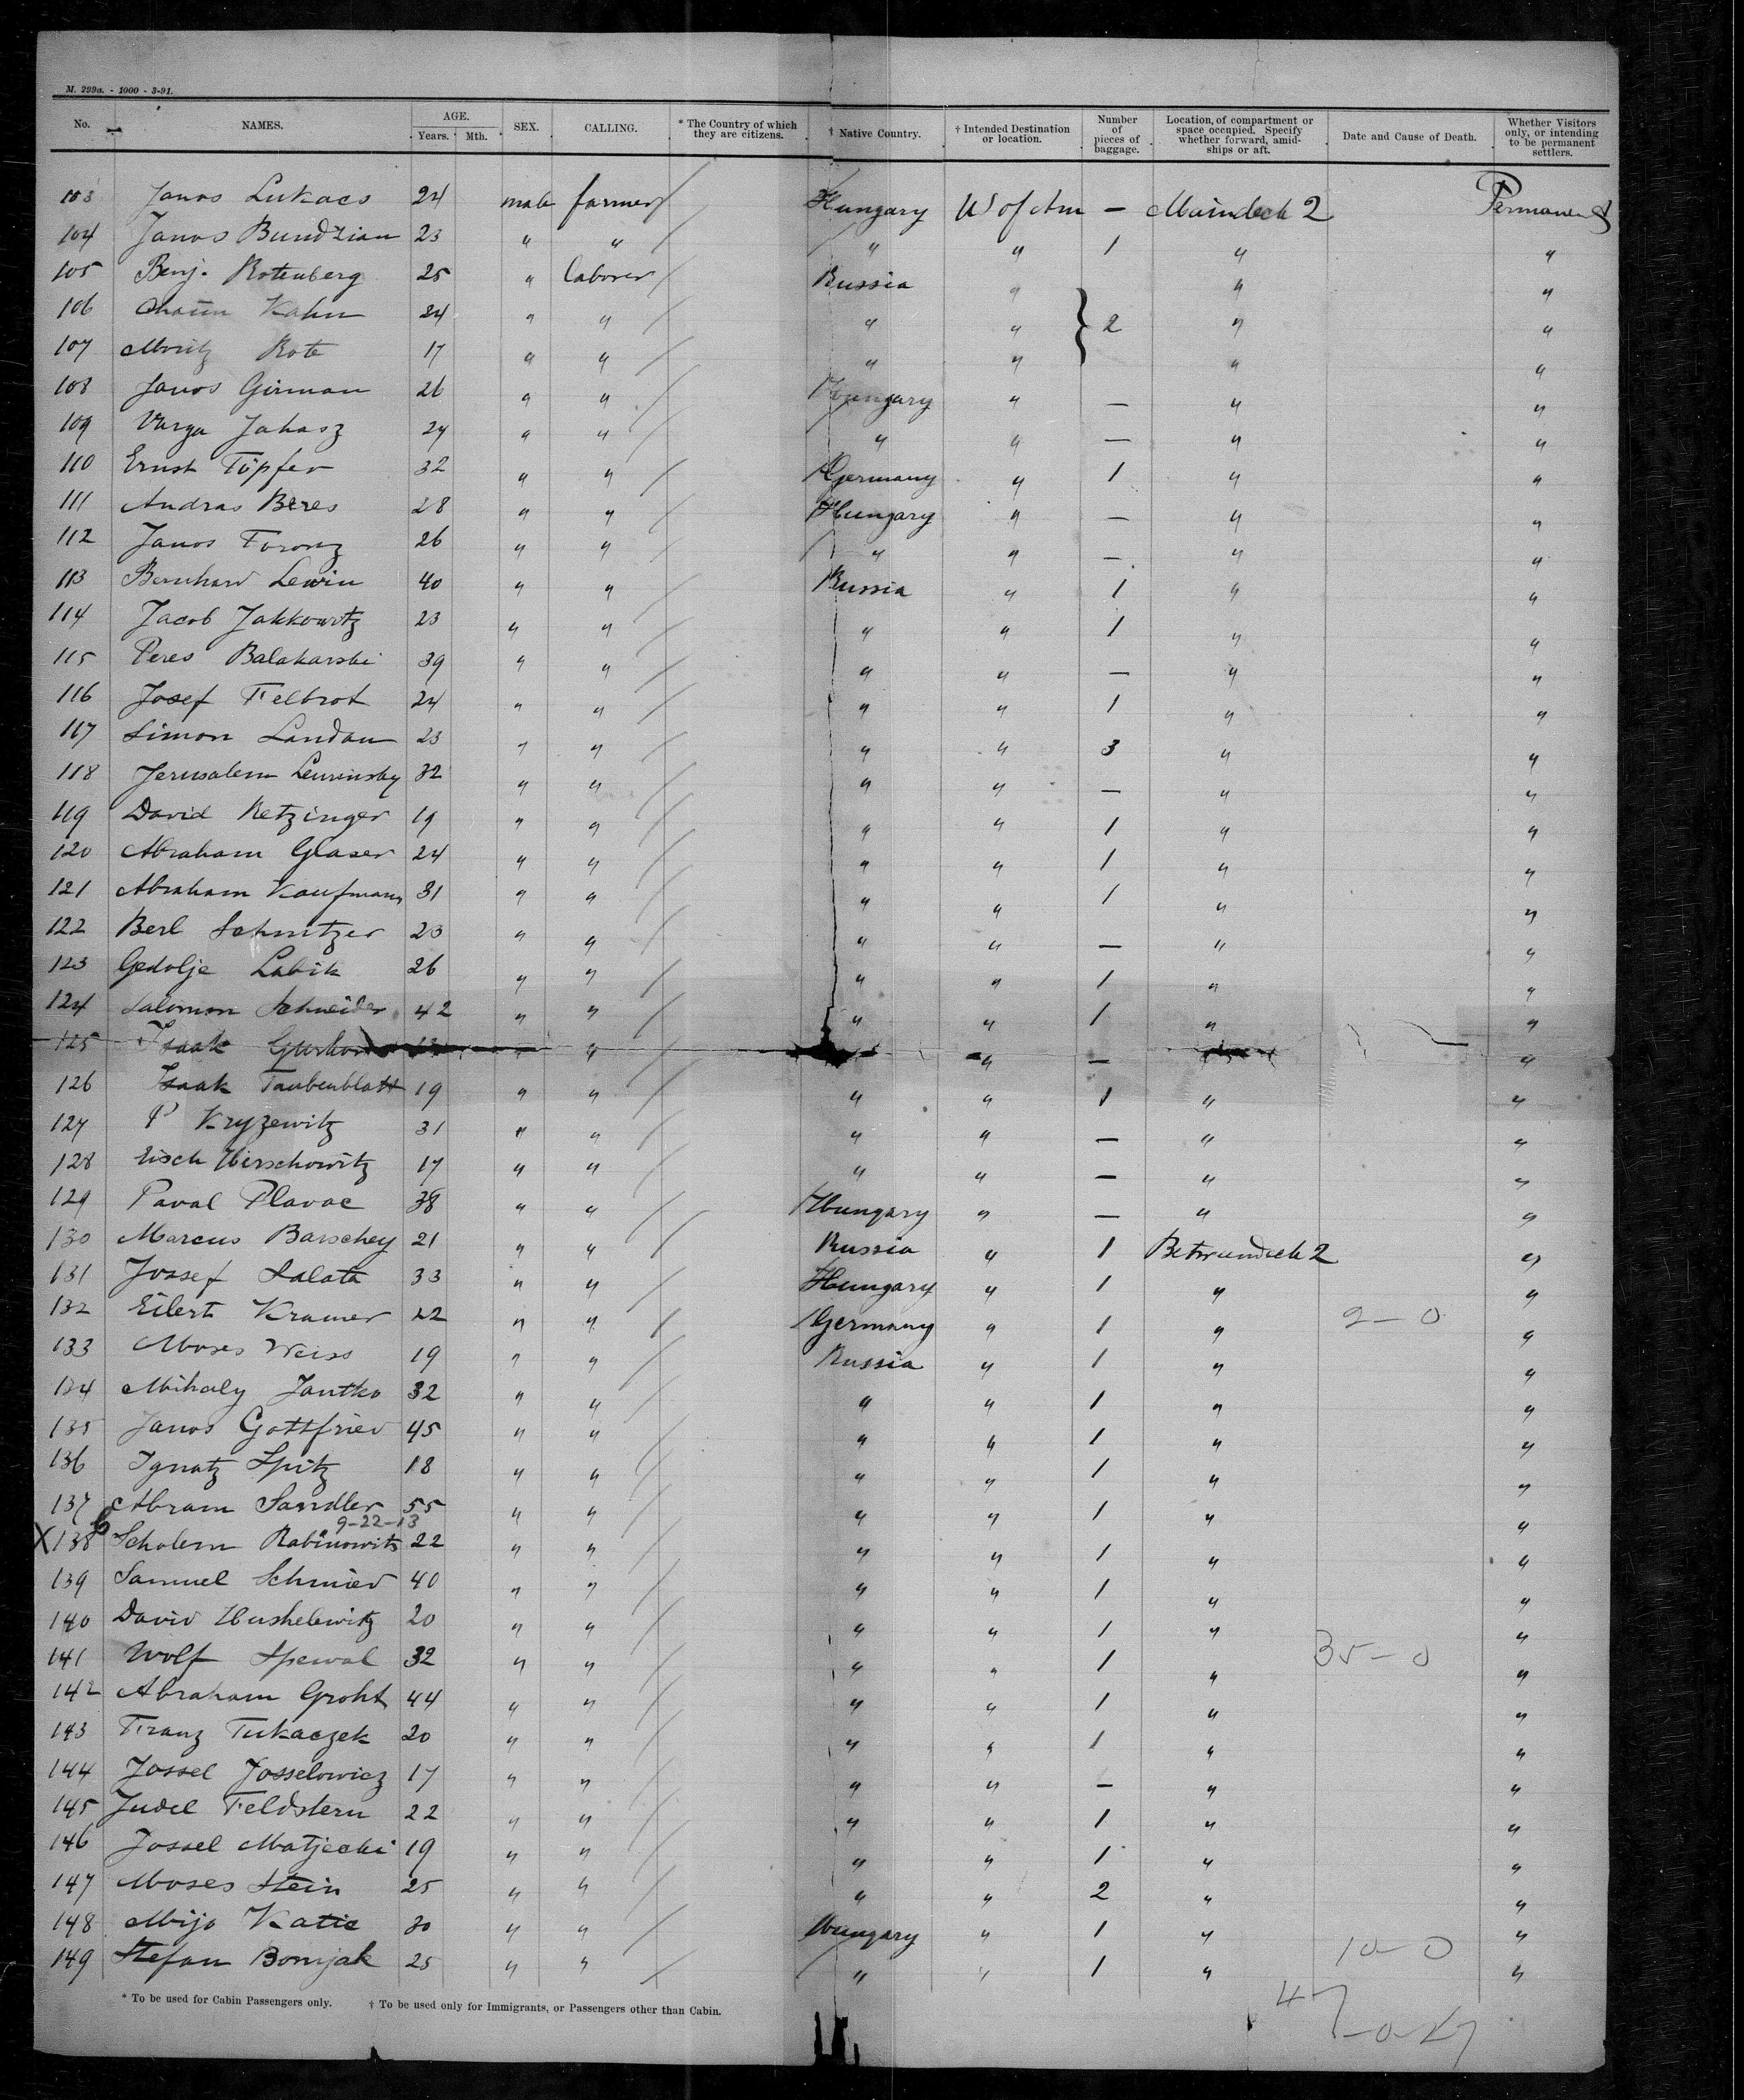 M. 299a. - 1000 - 3-91.
No. NAMES. AGE. Years. Mth. SEX. CALLING. * The Country of which they are citizens. † Native Country. † Intended Destination or location. Number of pieces of baggage. Location, of compartment or space occupied. Specify whether forward, amidships or aft. Date and Cause of Death. Whether Visitors only, or intending to be permanent settlers.
103 Janos Lukacs 24 male farmer Hungary U S of Am — Maindeck 2 Permanent
104 Janos Bundzian 23 " " " " 1 " "
105 Benj. Rotenberg 25 " laborer Russia " " "
106 Chaim Kahn 24 " " " " } 2 " "
107 Moritz Rote 17 " " " " " "
108 Janos Girman 26 " " Hungary " — " "
109 Varga Juhasz 24 " " " " — " "
110 Ernst Töpfer 32 " " Germany " 1 " "
111 Andras Beres 28 " " Hungary " — " "
112 Janos Foronz 26 " " " " — " "
113 Bernhard Lewin 40 " " Russia " 1 " "
114 Jacob Jakkowitz 23 " " " " 1 " "
115 Peres Balakarski 39 " " " " — " "
116 Josef Felbrot 24 " " " " 1 " "
117 Simon Landau 23 " " " " 3 " "
118 Jerusalem Lewinsky 32 " " " " — " "
119 David Retzinger 19 " " " " 1 " "
120 Abraham Glaser 24 " " " " 1 " "
121 Abraham Kaufmann 31 " " " " 1 " "
122 Berl Schnitzer 23 " " " " — " "
123 Gedolje Labik 26 " " " " 1 " "
124 Salomon Schneider 42 " " " " 1 " "
125 Isaak " " " — "
126 Isaak Taubenblatt 19 " " " " 1 " "
127 P Kryzewitz 31 " " " " — " "
128 Eisck Hirschowitz 17 " " " " — " "
129 Paval Plavac 38 " " Hungary " — " "
130 Marcus Barschey 21 " " Russia " 1 Betweendeck 2 "
131 Jossef Salata 33 " " Hungary " 1 " "
132 Eilert Kramer 22 " " Germany " 1 " 2 - 0 "
133 Moses Weiss 19 " " Russia " 1 " "
134 Mihaly Jantko 32 " " " " 1 " "
135 Janos Gottfried 45 " " " " 1 " "
136 Ignatz Spitz 18 " " " " 1 " "
137 Abram Sandler 55 " " " " 1 " "
9-22-13
X 138 Scholem Rabinowitz 22 " " " " 1 " "
139 Samuel Schmied 40 " " " " 1 " "
140 David Hushelewitz 20 " " " " 1 " "
141 Wolf Spewal 32 " " " " 1 " 35 - 0 "
142 Abraham Groht 44 " " " " 1 " "
143 Franz Tukaczek 20 " " " " 1 " "
144 Jossel Josselowicz 17 " " " " — " "
145 Judel Feldstern 22 " " " " 1 " "
146 Jossel Matjecki 19 " " " " 1 " "
147 Moses Stein 25 " " " " 2 " "
148 Mijo Katic 30 " " Hungary " 1 " "
149 Stefan Bomjak 25 " " " " 1 " 10 - 0 "
* To be used for Cabin Passengers only. † To be used only for Immigrants, or Passengers other than Cabin.
47 - 0 - 47